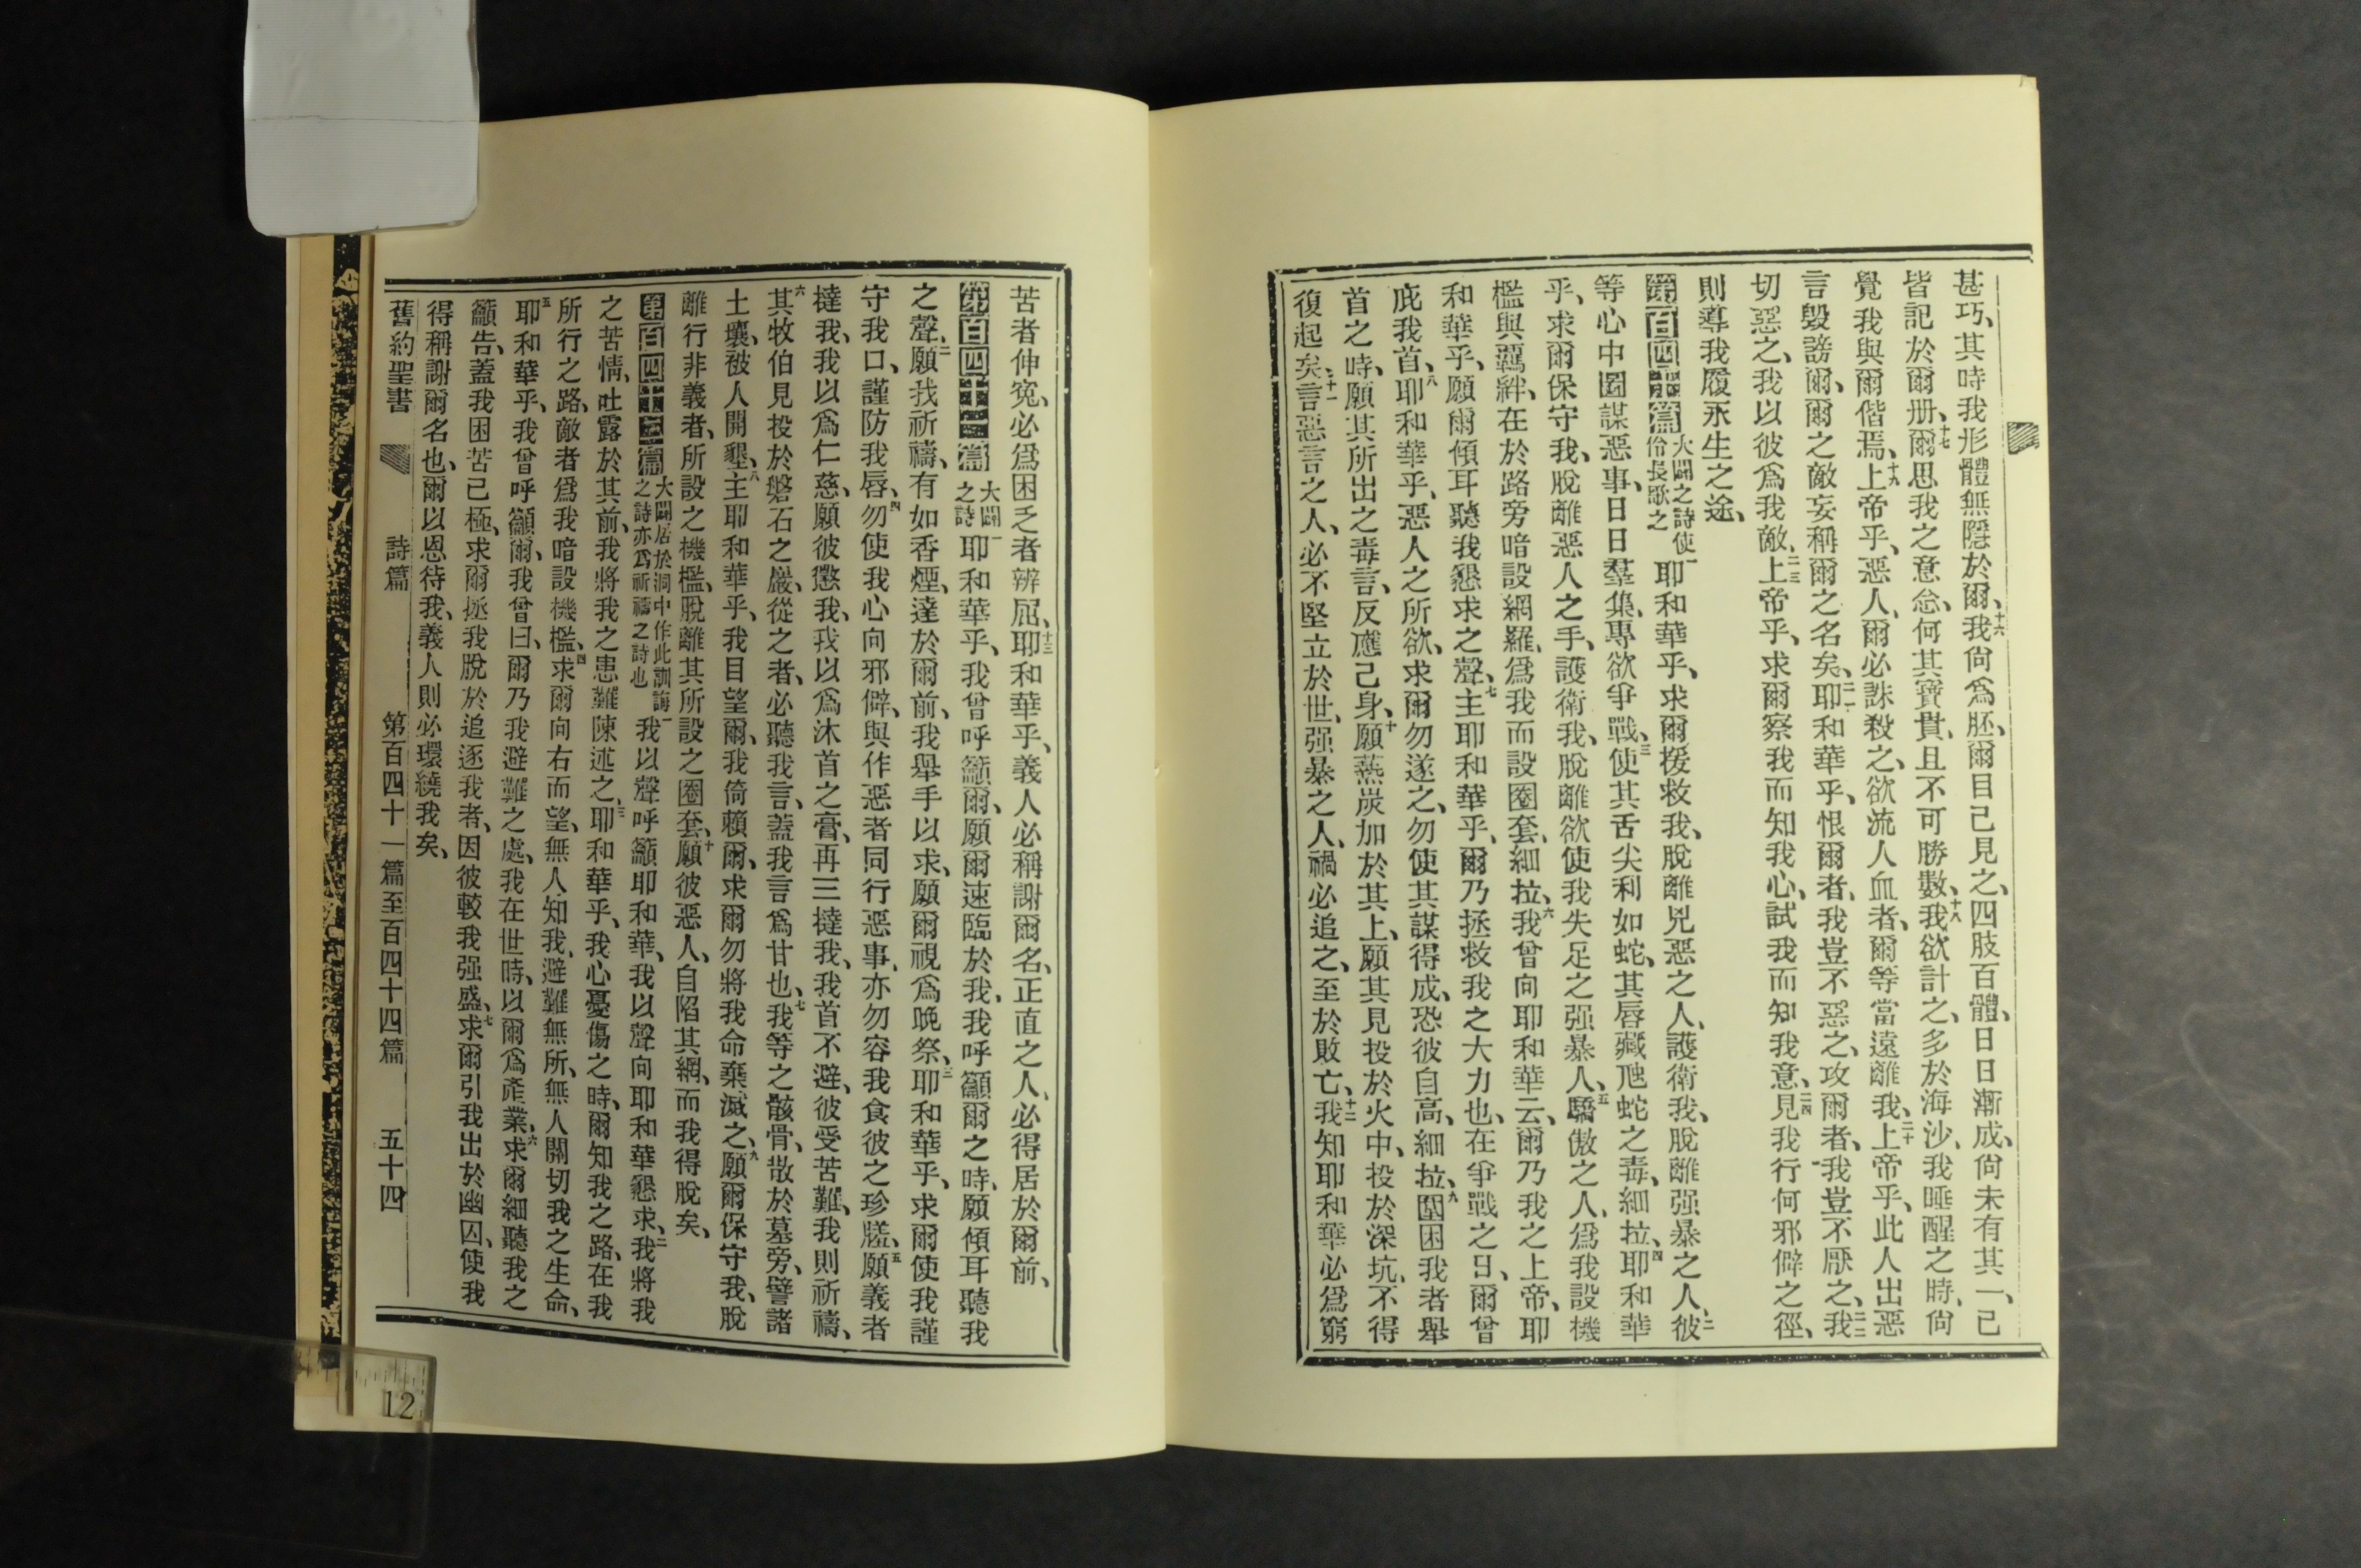 甚巧、其時我形體無隱於爾、十六我尙爲胚、爾目已見之、四肢百體、日日漸成、尙未有其一、已
皆記於爾册、十七爾思我之意念、何其寶貴、且不可勝數、十八我欲計之、多於海沙、我睡醒之時、尙
覺我與爾偕焉、十九上帝乎、惡人、爾必誅殺之、欲流人血者、爾等當遠離我、二十上帝乎、此人出惡
言毀謗爾、爾之敵妄稱爾之名矣、二一耶和華乎、恨爾者、我豈不惡之、攻爾者、我豈不厭之、二二我
切惡之、我以彼爲我敵、二三上帝乎、求爾察我而知我心、試我而知我意、二四見我行何邪僻之徑、
則導我履永生之途、
第百四十篇 大闢之詩使伶長歌之 一耶和華乎、求爾援救我、脫離兇惡之人、護衛我、脫離强暴之人、二彼
等心中圖謀惡事、日日羣集、專欲爭戰、三使其舌尖利如蛇、其唇藏虺蛇之毒、細拉、四耶和華
乎、求爾保守我、脫離惡人之手、護衛我、脫離欲使我失足之强暴人、五驕傲之人、爲我設機
檻與羈絆、在於路旁暗設網羅、爲我而設圈套、細拉、六我曾向耶和華云、爾乃我之上帝、耶
和華乎、願爾傾耳聽我懇求之聲、七主耶和華乎、爾乃拯救我之大力也、在爭戰之日、爾曾
庇我首、八耶和華乎、惡人之所欲、求爾勿遂之、勿使其謀得成、恐彼自高、細拉、九圍困我者舉
首之時、願其所出之毒言、反應己身、十願爇炭加於其上、願其見投於火中、投於深坑、不得
復起矣、十一言惡言之人、必不堅立於世、强暴之人、禍必追之、至於敗亡、十二我知耶和華必爲窮
苦者伸寃、必爲困乏者辨屈、十三耶和華乎、義人必稱謝爾名、正直之人、必得居於爾前、
第百四十一篇 大闢之詩 一耶和華乎、我曾呼籲爾、願爾速臨於我、我呼籲爾之時、願傾耳聽我
之聲、二願我祈禱、有如香煙、達於爾前、我舉手以求、願爾視爲晚祭、三耶和華乎、求爾使我謹
守我口、謹防我唇、四勿使我心向邪僻、與作惡者同行惡事、亦勿容我食彼之珍饈、五願義者
撻我、我以爲仁慈、願彼懲我、我以爲沐首之膏、再三撻我、我首不避、彼受苦難、我則祈禱、
六其牧伯見投於磐石之巖、從之者、必聽我言、蓋我言爲甘也、七我等之骸骨、散於墓旁、譬諸
土壤、被人開墾、八主耶和華乎、我目望爾、我倚賴爾、求爾勿將我命棄滅之、九願爾保守我、脫
離行非義者、所設之機檻、脫離其所設之圈套、十願彼惡人、自陷其網、而我得脫矣、
第百四十二篇 大闢居於洞中作此訓誨之詩亦爲祈禱之詩也 一我以聲呼籲耶和華、我以聲向耶和華懇求、二我將我
之苦情、吐露於其前、我將我之患難陳述之、三耶和華乎、我心憂傷之時、爾知我之路、在我
所行之路、敵者爲我暗設機檻、四求爾向右而望、無人知我、避難無所、無人關切我之生命、
五耶和華乎、我曾呼籲爾、我曾曰、爾乃我避難之處、我在世時、以爾爲產業、六求爾細聽我之
籲告、蓋我困苦已極、求爾拯我脫於追逐我者、因彼較我强盛、七求爾引我出於幽囚、使我
得稱謝爾名也、爾以恩待我、義人則必環繞我矣、
舊約聖書 詩篇 第百四十一篇至百四十四篇 五十四
12